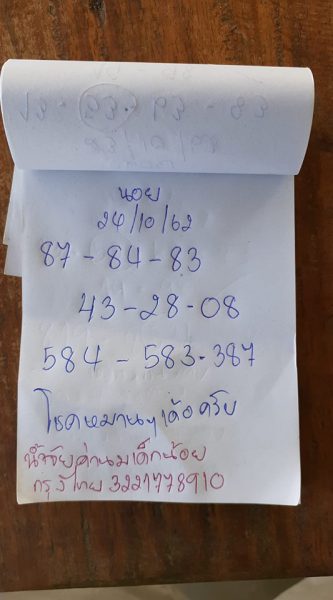 นอย
24/10/62
87-84-83
43-28-08
584-583-387
โชคหมานๆเด้อครับ
น้ำใจค่านมเด็กน้อย
กรุงไทย 3221778910